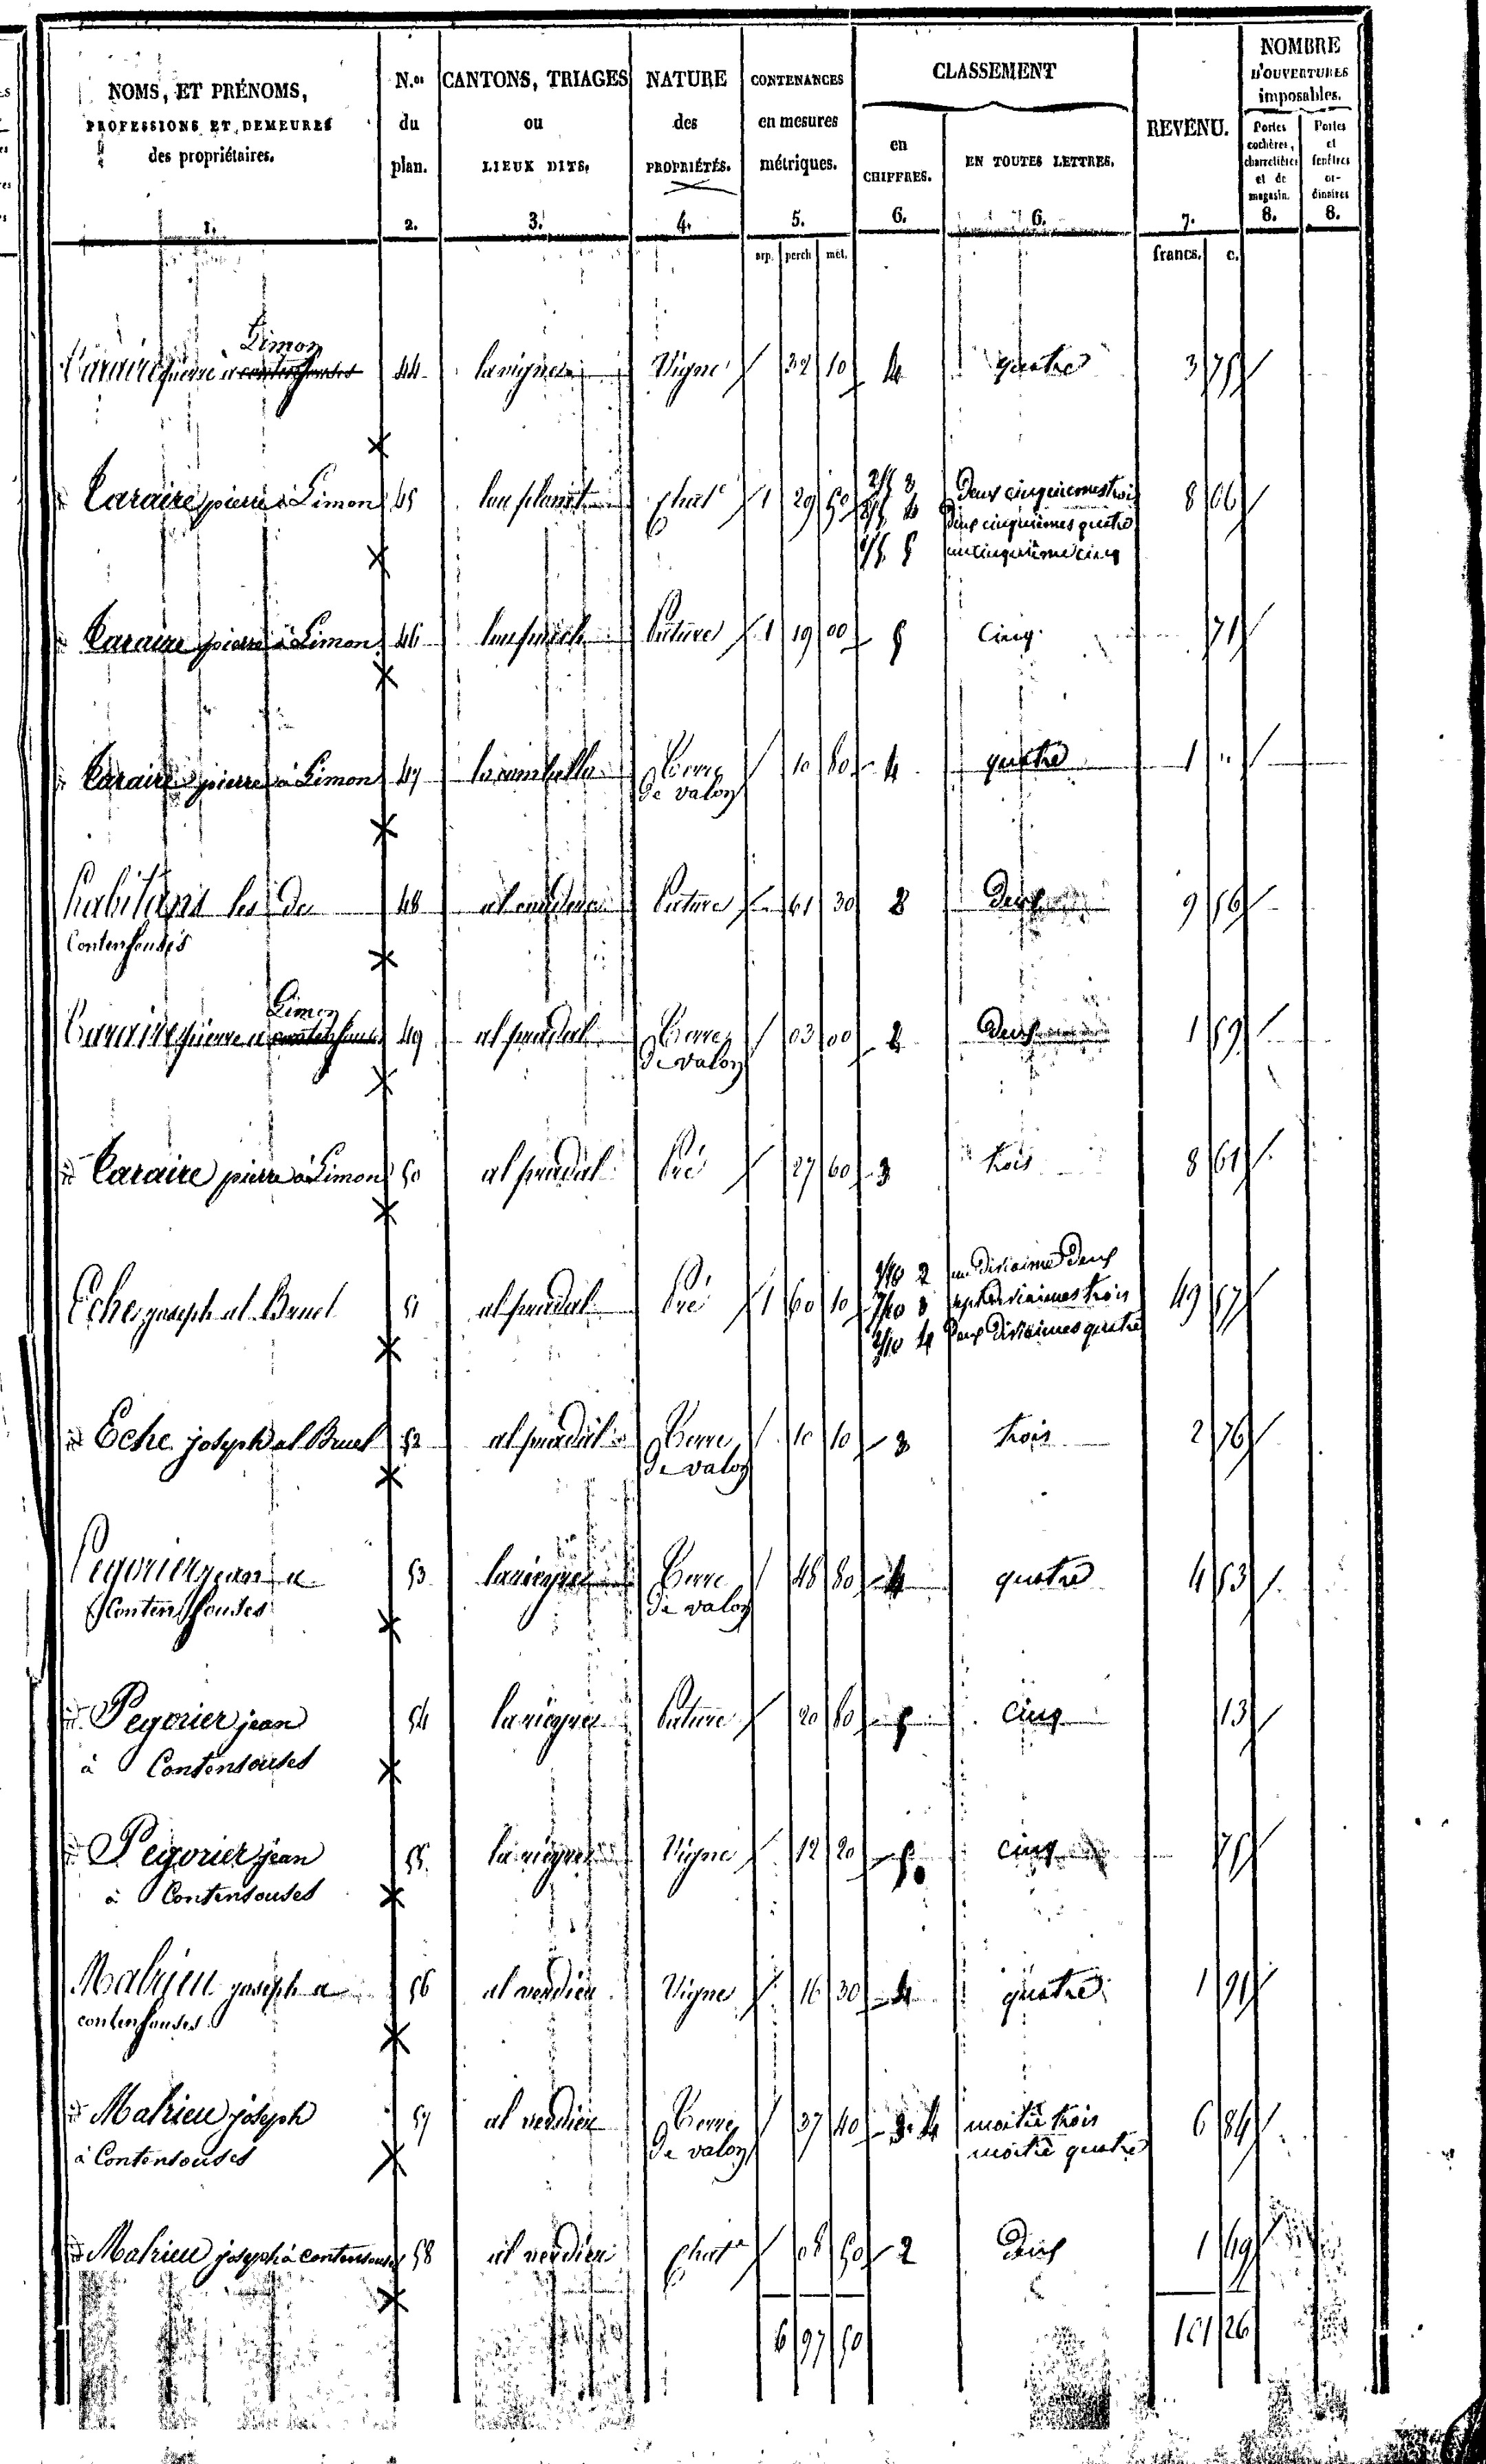 NOMS, ET PRÉNOMS, PROFESSIONS ET DEMEURES des propriétaires. N.os du plan. CANTONS, TRIAGES ou LIEUX DITS. NATURE des PROPRIÉTÉS. CONTENANCES en mesures métriques. CLASSEMENT en CHIFFRES. EN TOUTES LETTRES. REVENU. NOMBRE D'OUVERTURES imposables. Portes cochères, charretières et de magasin. Portes et fenêtres ordinaires
1. 2. 3. 4. 5. 6. 6. 7. 8. 8.
arp. perch mèt. francs. c.
Limon
Caraire pierre a contensouses 44 Vigne 32 10 4 quatre 3 75
Caraire pierre à Limon 45 chat.e 1 29 50 2/5 3 Deux cinquiemes trois 8 06
2/5 4 Deux cinquiemes quatre
1/5 5 un cinquième cinq
Caraire pierre à Limon 46 Pature 1 19 00 5 Cinq 71
Caraire pierre à Limon 47 Terre 10 80 4 quatre 1 "
de valon
habitans les de 48 Pature 61 30 2 Deux 9 56
Contensouses
Limon
Caraire pierre a contensouses 49 al pradal Terre 03 00 2 Deux 1 59
de valon
Caraire pierre à Limon 50 al pradal Pré 27 60 3 trois 8 61
Eche joseph al Bruel 51 al pradal Pré 1 60 10 1/10 2 un Dixieme Deux 49 57
7/10 3 sept dixiemes trois
2/10 4 Deux Dixiemes quatre
Eche joseph al Bruel 52 al pradal Terre 10 10 3 trois 2 76
de valon
Pegorier jean a 53 Terre 48 80 4 quatre 4 53
Contensouses de valon
Pegorier jean 54 Pature 20 80 5 Cinq 13
à Contensouses
Pegorier jean 55 Vigne 12 20 5 cinq 75
à Contensouses
Malrieu joseph a 56 al verdier Vigne 16 30 4 quatre 1 91
contensouses
Malrieu joseph 57 al verdier Terre 37 40 3. 4 moitié trois 6 84
à Contensouses de valon moitié quatre
Malrieu joseph à contensouses 58 al verdier Chat.e 08 50 2 Deux 1 49
6 97 50 101 26